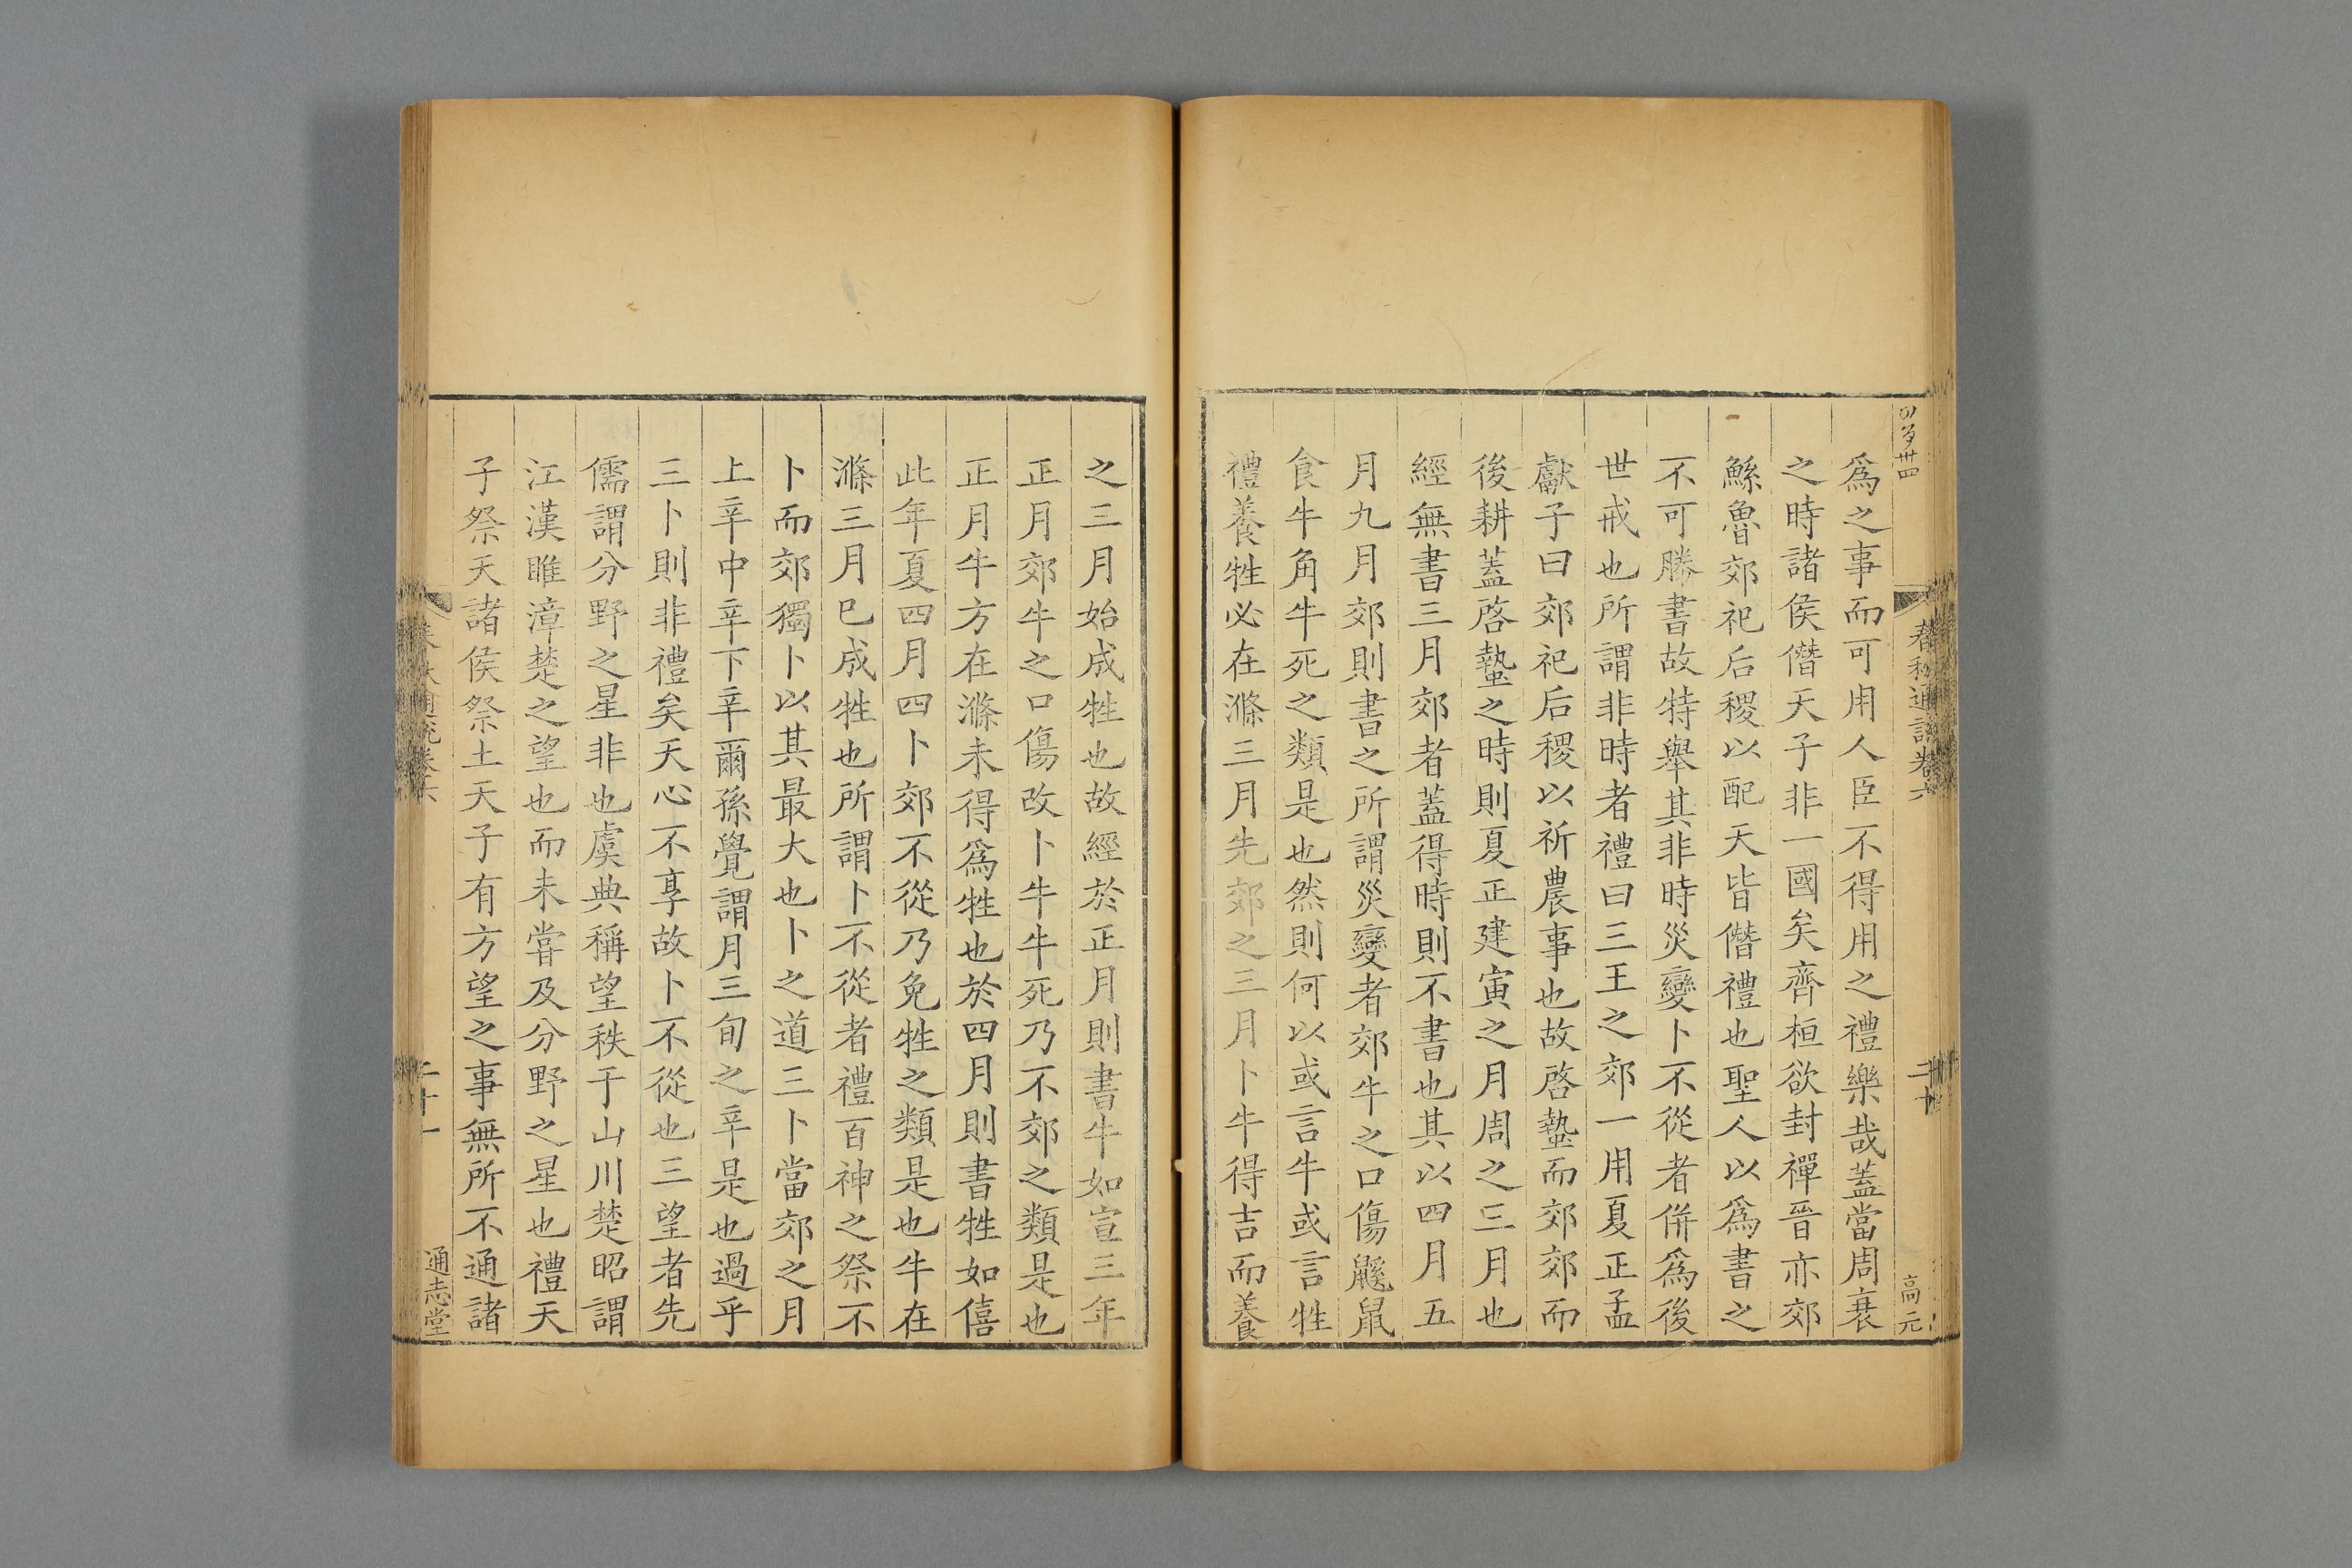 春秋通說卷六
二十
高元
爲之事而可用人臣不得用之禮樂哉蓋當周衰
之時諸侯僭天子非一國矣齊桓欲封禪晉亦郊
鯀魯郊祀后稷以配天皆僭禮也聖人以爲書之
不可勝書故特舉其非時災變卜不從者併爲後
世戒也所謂非時者禮曰三王之郊一用夏正孟
獻子曰郊祀后稷以祈農事也故啓蟄而郊郊而
後耕蓋啓蟄之時則夏正建寅之月周之三月也
經無書三月郊者蓋得時則不書也其以四月五
月九月郊則書之所謂災變者郊牛之口傷鼷鼠
食牛角牛死之類是也然則何以或言牛或言牲
禮養牲必在滌三月先郊之三月卜牛得吉而養
之三月始成牲也故經於正月則書牛如宣三年
正月郊牛之口傷改卜牛牛死乃不郊之類是也
正月牛方在滌未得爲牲也於四月則書牲如僖
此年夏四月四卜郊不從乃免牲之類是也牛在
滌三月巳成牲也所謂卜不從者禮百神之祭不
卜而郊獨卜以其最大也卜之道三卜當郊之月
上辛中辛下辛爾孫覺謂月三旬之辛是也過乎
三卜則非禮矣天心不享故卜不從也三望者先
儒謂分野之星非也虞典稱望秩于山川楚昭謂
江漢睢漳楚之望也而未嘗及分野之星也禮天
子祭天諸侯祭土天子有方望之事無所不通諸
春秋通說卷六
二十一
通志堂